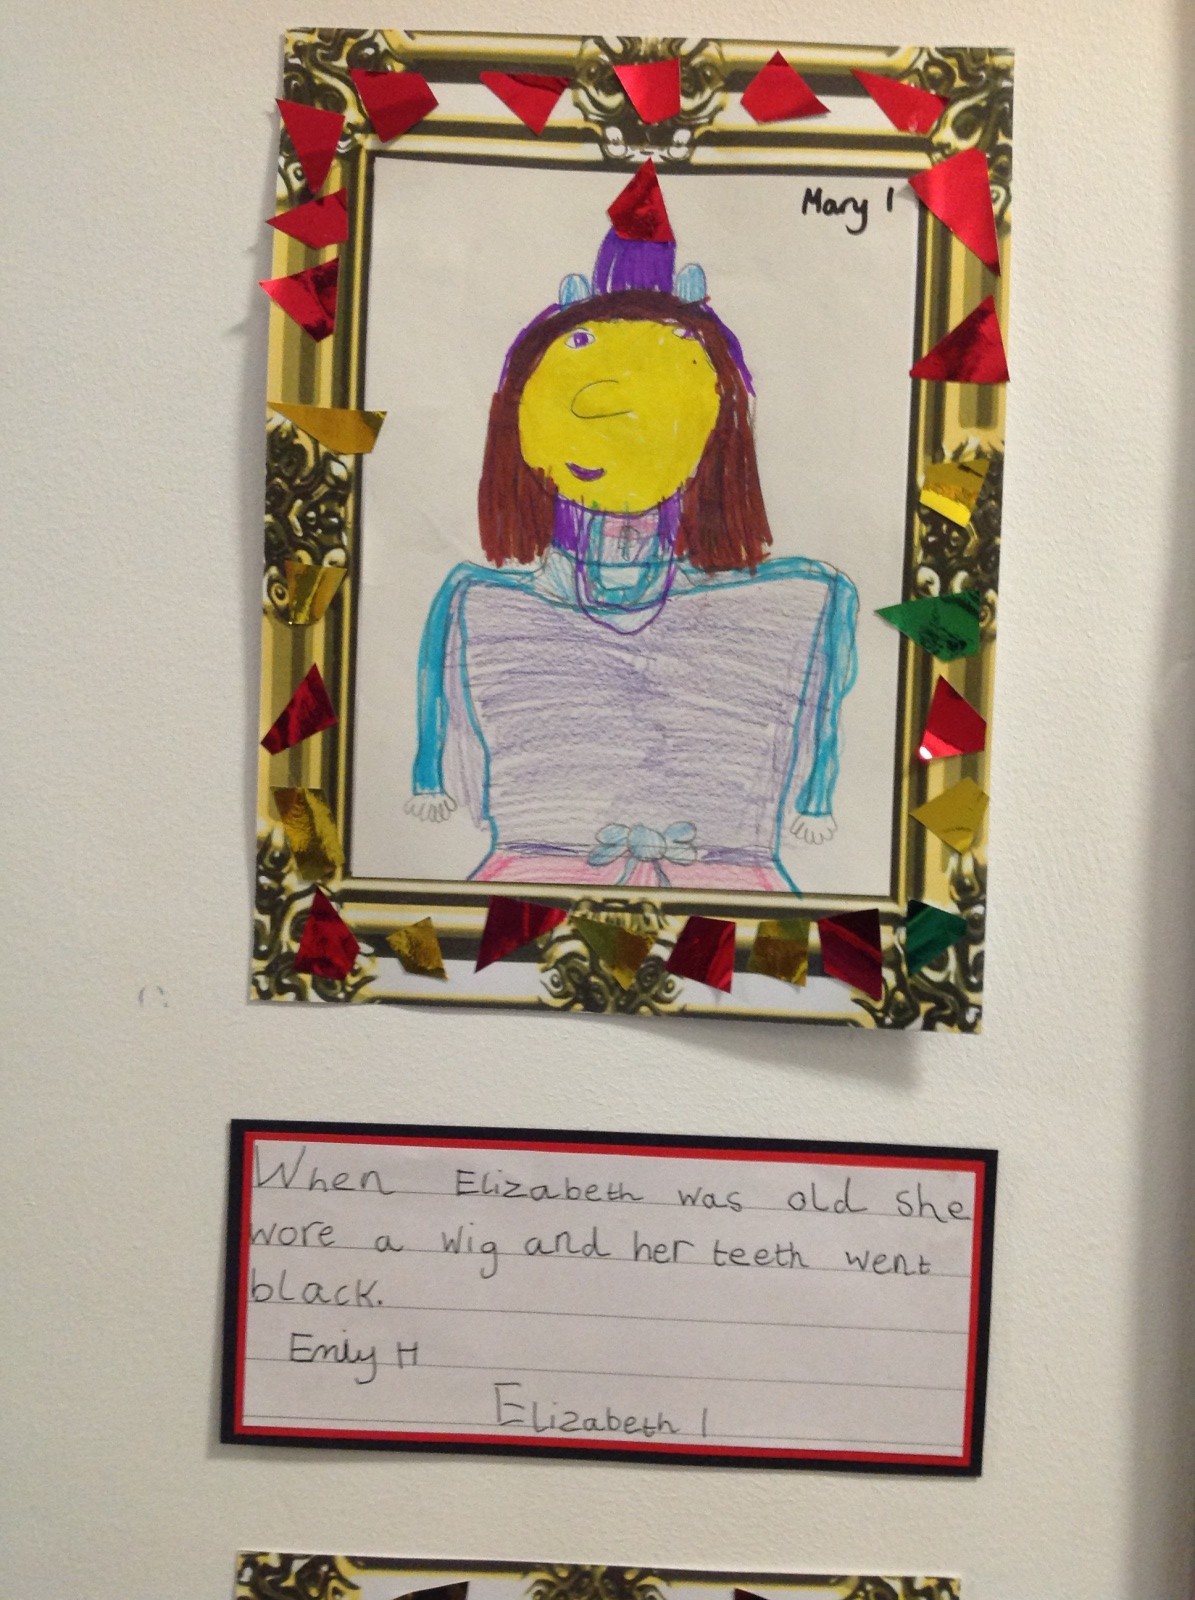 Mary 1
When Elizabeth was old she
wore a wig and her teeth went
black.
Emily H
Elizabeth 1